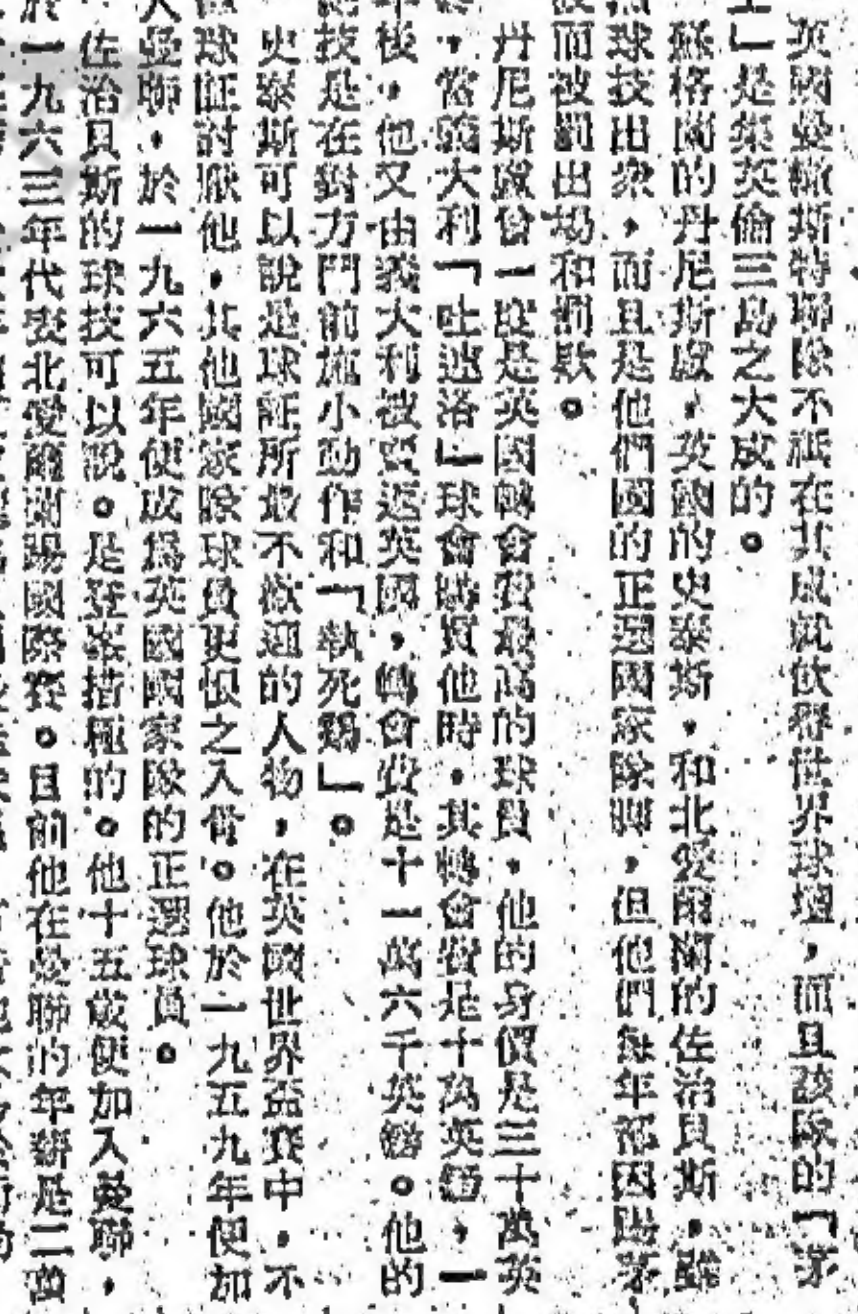 英國曼徹斯特聯隊不祇在其成就飲譽世界球壇,而且該隊的「茅
」是集英倫三島之大成的。
蘇格蘭的丹尼斯羅,英國的史泰斯,和北愛爾蘭的佐治貝斯,雖
球技出衆,而且是他們國的正選國家隊脚,但他們每年都因踢茅
而被罰出場和罰欵。
丹尼斯羅曾一度是英國轉會費最高的球員,他的身價是三十萬英
,當義大利「吐連洛」球會購買他時,其轉會費是十萬英鎊,一
年後,他又由義大利被買返英國,轉會費是十一萬六千英鎊。他的
技是在對方門前施小動作和「執死鷄」。
史泰斯可以說是球証所最不歡迎的人物,在英國世界盃賽中,不
球証討厭他,其他國家隊球員更恨之入骨。他於一九五九年便加
入曼聯,於一九六五年便成爲英國國家隊的正選球員。
佐治貝斯的球技可以說。是登峯措極的。他十五歲便加入曼聯,
於一九六三年代表北愛爾蘭踢國際賽。目前他在曼聯的年薪是二萬